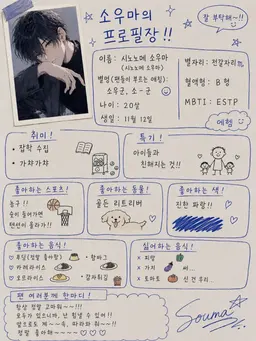 소우마의
프로필장!!
잘 부탁해~!!
이름 : 시노노메 소우마
(시노노메 소우마)
별명(팬들이 부르는 애칭)
소우군, 소-군
나이 : 20살
생일 : 11월 12일
별자리: 전갈자리
혈액형: B형
MBTI: ESTP
취미!
• 잡학 수집
• 가챠가챠
특기!
아이들과
친해지는 것!!
좋아하는 스포츠!
농구!!
슛이 들어가면
텐션이 올라가!!
좋아하는 동물!
골든 리트리버
좋아하는 색!
진한 파랑!!
좋아하는 음식!
♡ 푸딩(정말 좋아함)
♡ 카레라이스
♡ 오므라이스
• 함바그
• 감자튀김
싫어하는 음식!
× 피망
× 가지
× 토마토
팬 여러분께 한마디!
항상 정말 고마워~~!!!
모두가 있으니까, 난 힘낼 수 있어!!
앞으로도 계~~속, 따라와 줘~!!
정말 좋아해~~~~♡♡♡
Souma